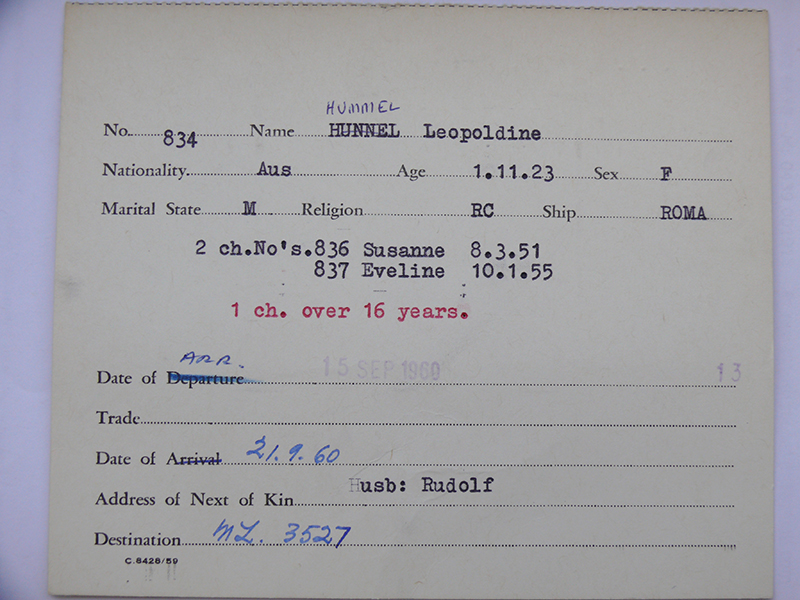 HUMMEL
No. 834 Name HUNNEL Leopoldine
Nationality Aus Age 1.11.23 Sex F
Marital State M Religion RC Ship ROMA
2 ch.No's.836 Susanne 8.3.51
837 Eveline 10.1.55
1 ch. over 16 years.
ARR.
Date of Departure 15 SEP 1960 13
Trade
Date of Arrival 21.9.60
Address of Next of Kin Husb: Rudolf
Destination ML. 3527
C.8428/59